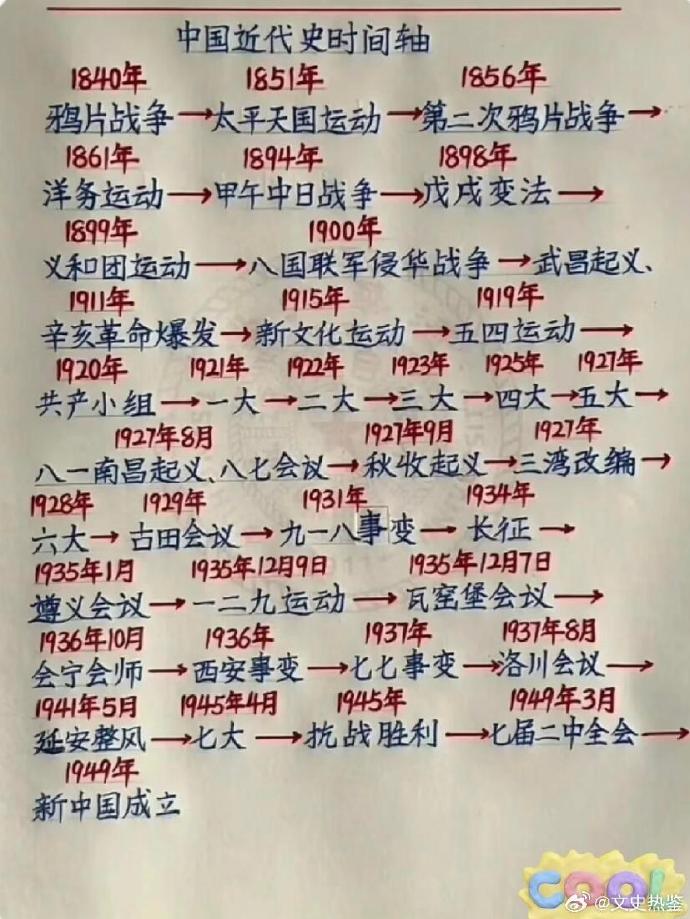 中国近代史时间轴
1840年 1851年 1856年
鸦片战争→太平天国运动→第二次鸦片战争→
1861年 1894年 1898年
洋务运动→甲午中日战争→戊戌变法→
1899年 1900年
义和团运动→八国联军侵华战争→武昌起义、
1911年 1915年 1919年
辛亥革命爆发→新文化运动→五四运动→
1920年 1921年 1922年 1923年 1925年 1927年
共产小组→一大→二大→三大→四大→五大→
1927年8月 1927年9月 1927年
八一南昌起义、八七会议→秋收起义→三湾改编→
1928年 1929年 1931年 1934年
六大→古田会议→九一八事变→长征→
1935年1月 1935年12月9日 1935年12月7日
遵义会议→一二九运动→瓦窑堡会议→
1936年10月 1936年 1937年 1937年8月
会宁会师→西安事变→七七事变→洛川会议→
1941年5月 1945年4月 1945年 1949年3月
延安整风→七大→抗战胜利→七届二中全会→
1949年
新中国成立
COOL
@文史热鉴